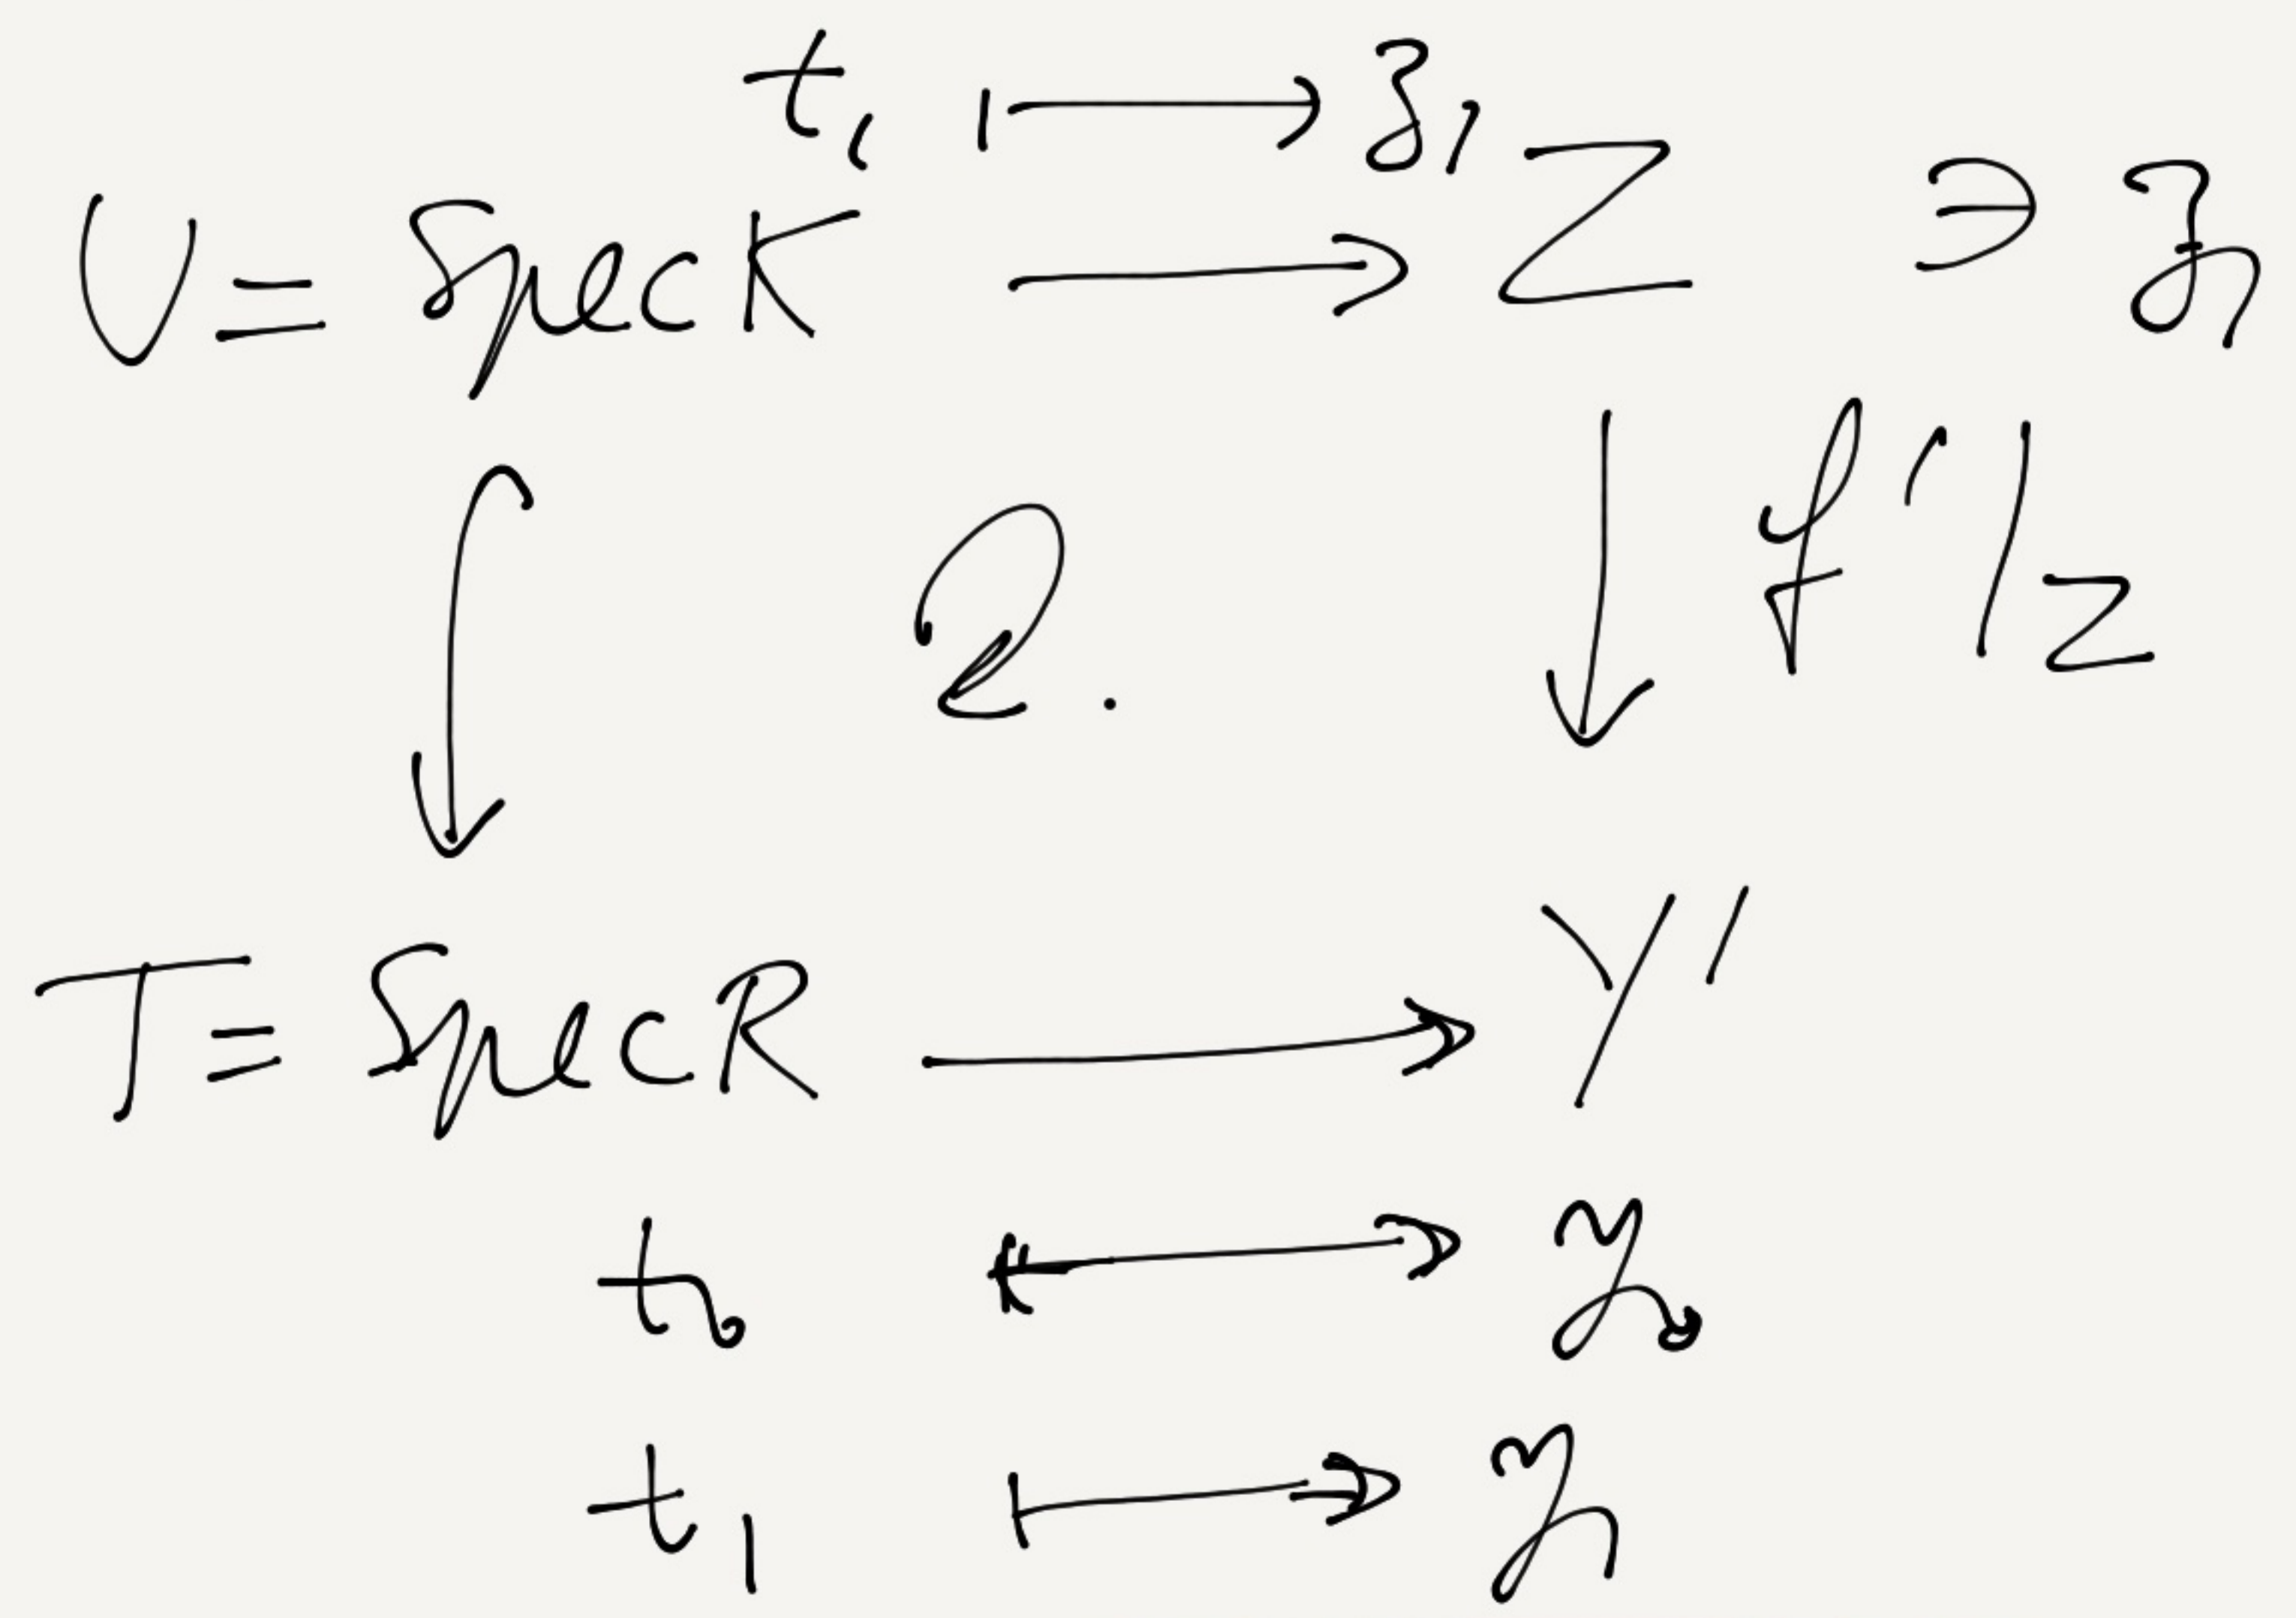 t₁ ↦ z₁
U = Spec K → Z ∋ z₁
2. f'|Z
T = Spec R → Y'
t₀ ↦ y₀
t₁ ↦ y₁